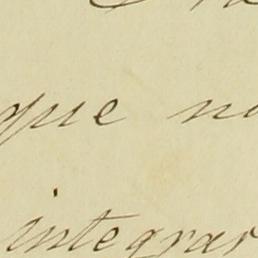 que no
integrar